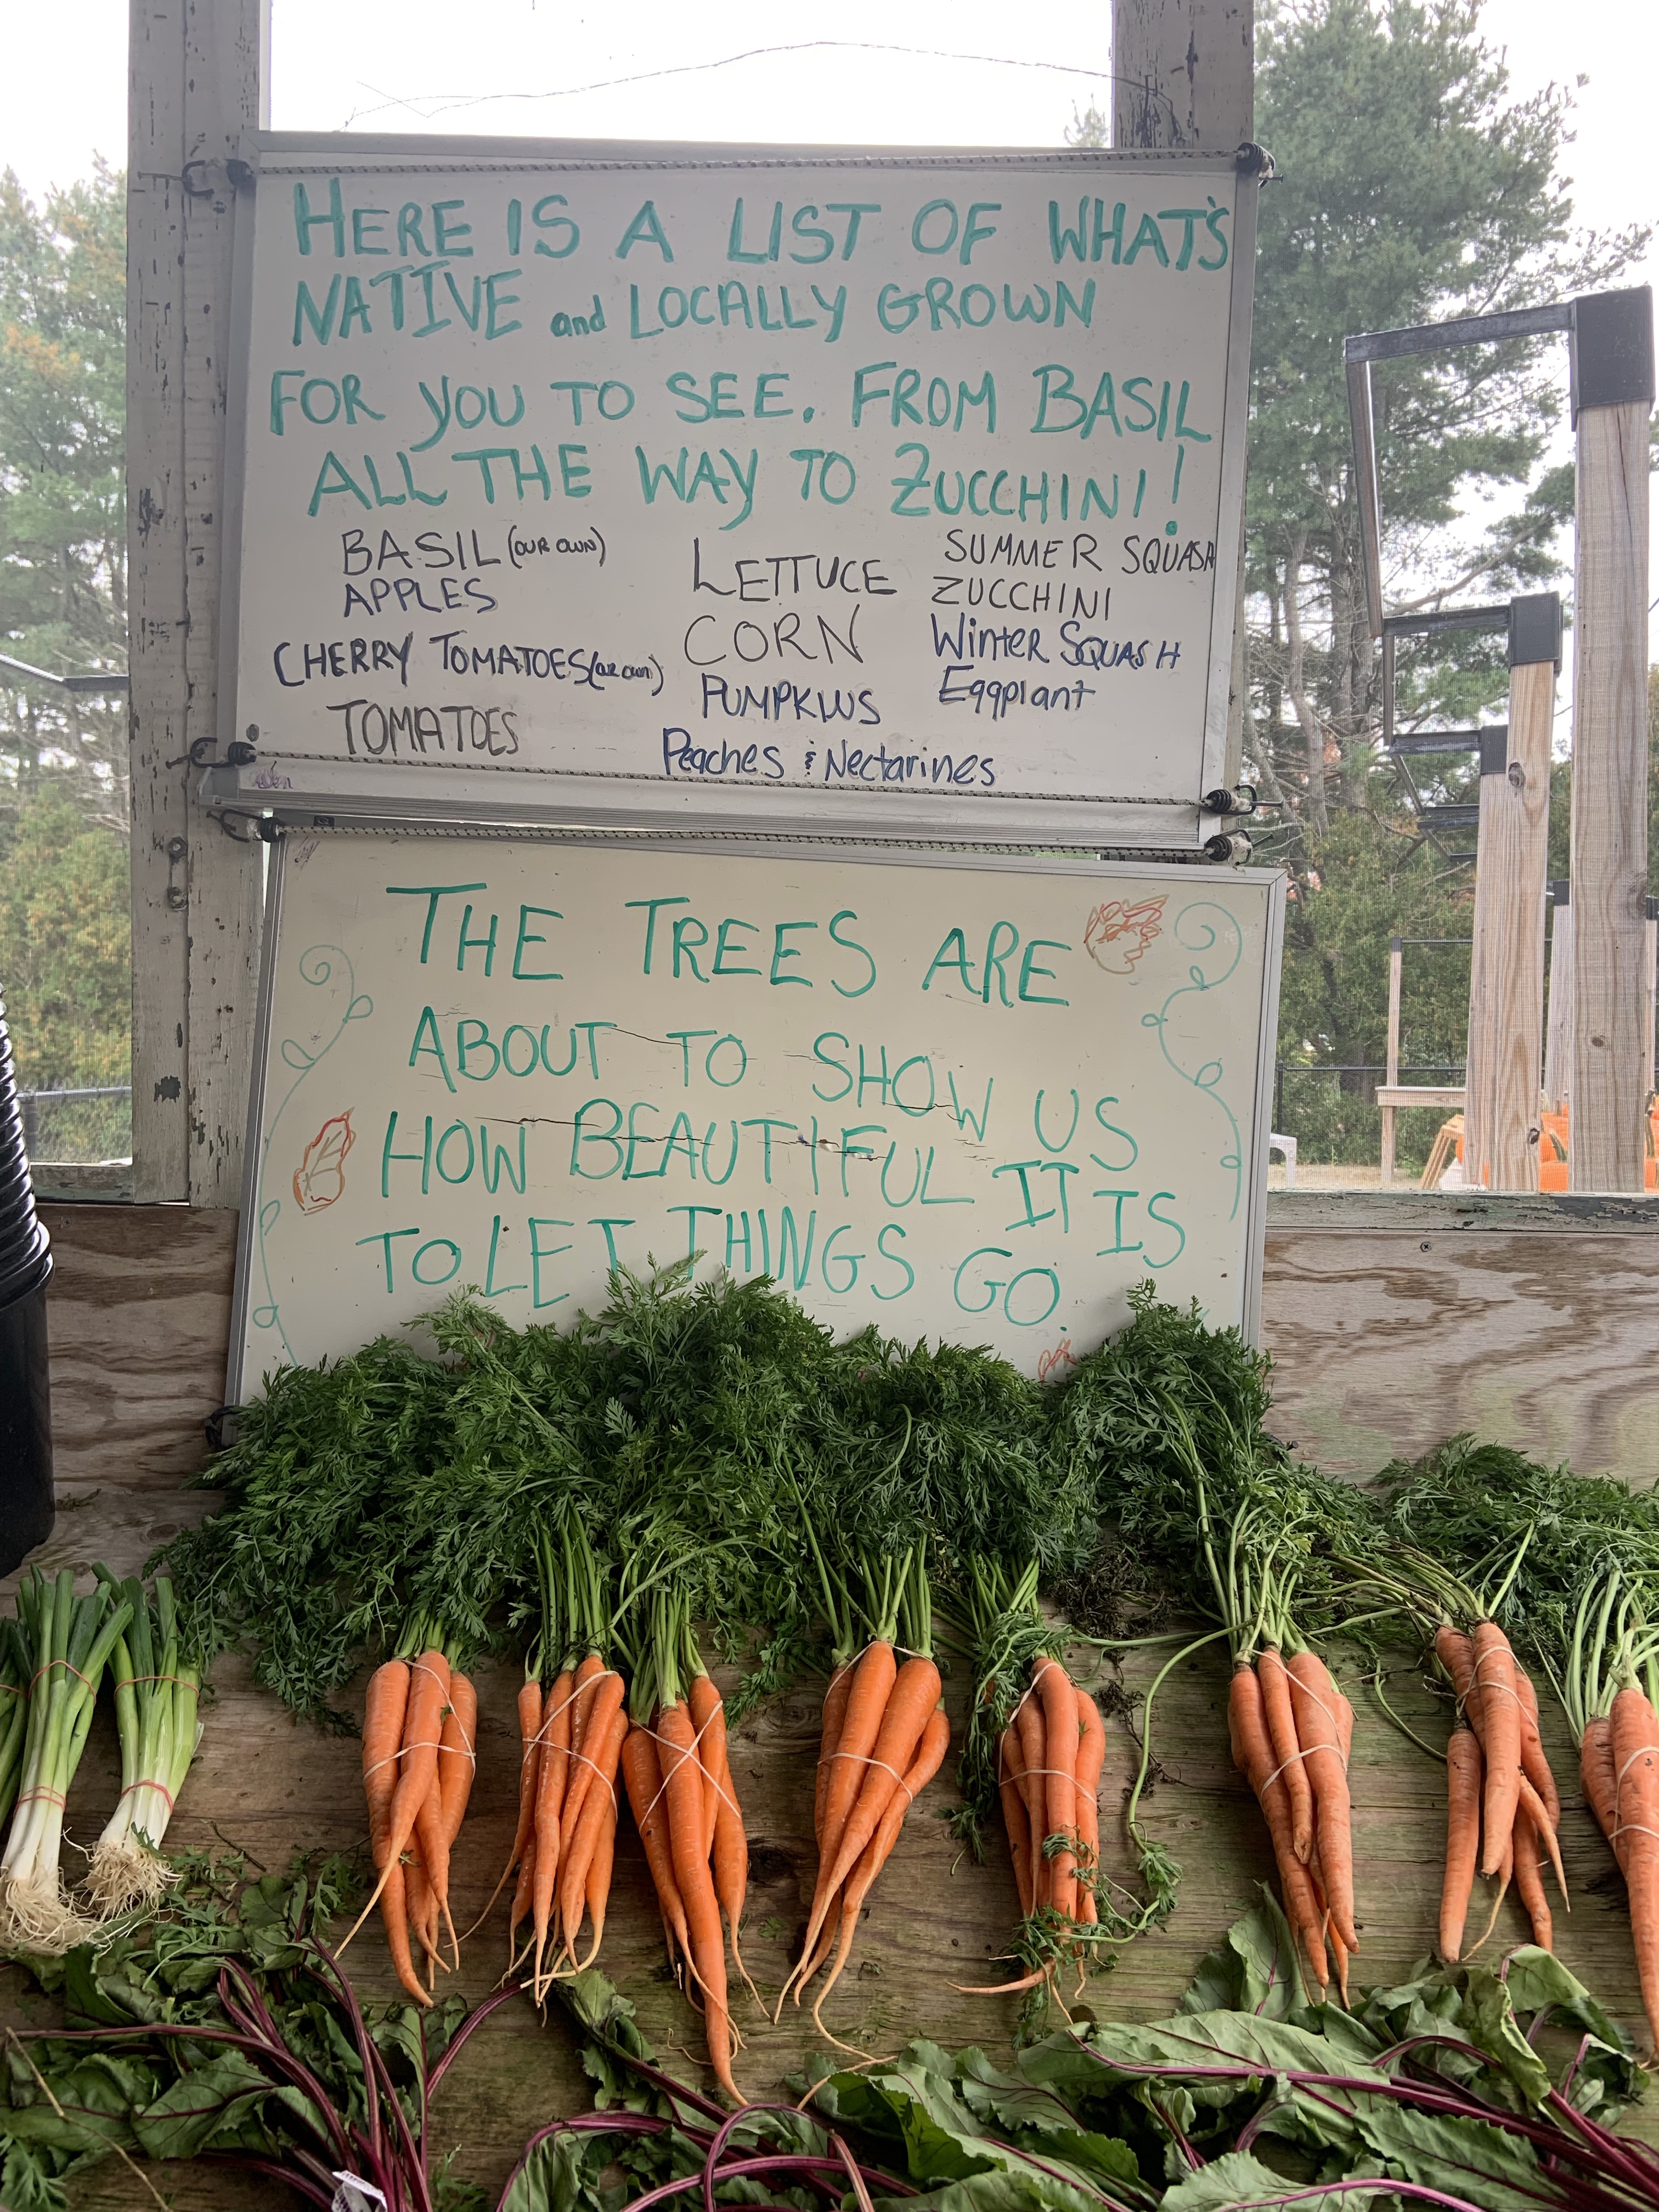 HERE IS A LIST OF WHAT'S
NATIVE and LOCALLY GROWN
FOR YOU TO SEE. FROM BASIL
ALL THE WAY TO ZUCCHINI!
BASIL (OUR OWN)
APPLES
CHERRY TOMATOES (OUR OWN)
TOMATOES
LETTUCE
CORN
PUMPKINS
Peaches & Nectarines
SUMMER SQUASH
ZUCCHINI
Winter SQUASH
Eggplant
THE TREES ARE
ABOUT TO SHOW US
HOW BEAUTIFUL IT IS
TO LET THINGS GO.